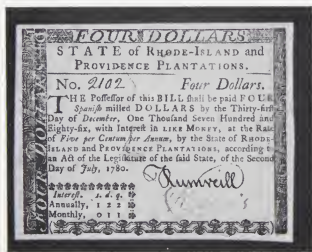 FOUR DOLLARS
STATE of RHODE-ISLAND and
PROVIDENCE PLANTATIONS.
No. 2102 Four Dollars.
THE Possessor of this BILL shall be paid FOUR
Spanish milled DOLLARS by the Thirty-first
Day of December, One Thousand Seven Hundred and
Eighty-six, with Interest in LIKE MONEY, at the Rate
of Five per Centum per Annum, by the State of RHODE-
ISLAND and PROVIDENCE PLANTATIONS, according t
an Act of the Legislature of the said State, of the Second
Day of July, 1780.
Interest. s. d. q.
Annually, 1 2 2
Monthly, 0 1 1
FOUR DOLLARS